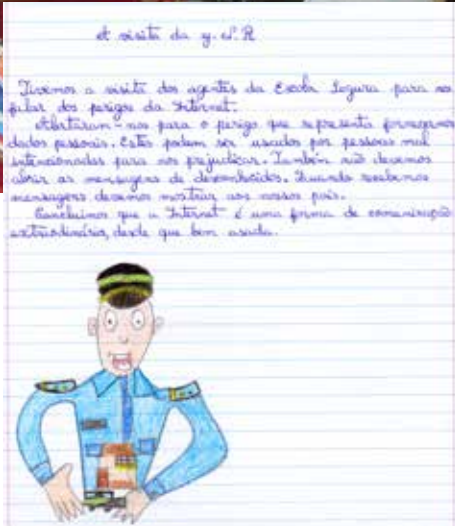 A visita da G. N. R
Tivemos a visita dos agentes da Escola Segura para nos
falar dos perigos da Internet.
Alertaram-nos para o perigo que representa fornecermos
dados pessoais. Estes podem ser usados por pessoas mal
intencionadas para nos prejudicar. Também não devemos
abrir as mensagens de desconhecidos. Quando recebemos
mensagens devemos mostrar aos nossos pais.
Concluímos que a Internet é uma forma de comunicação
extraordinária, desde que bem usada.